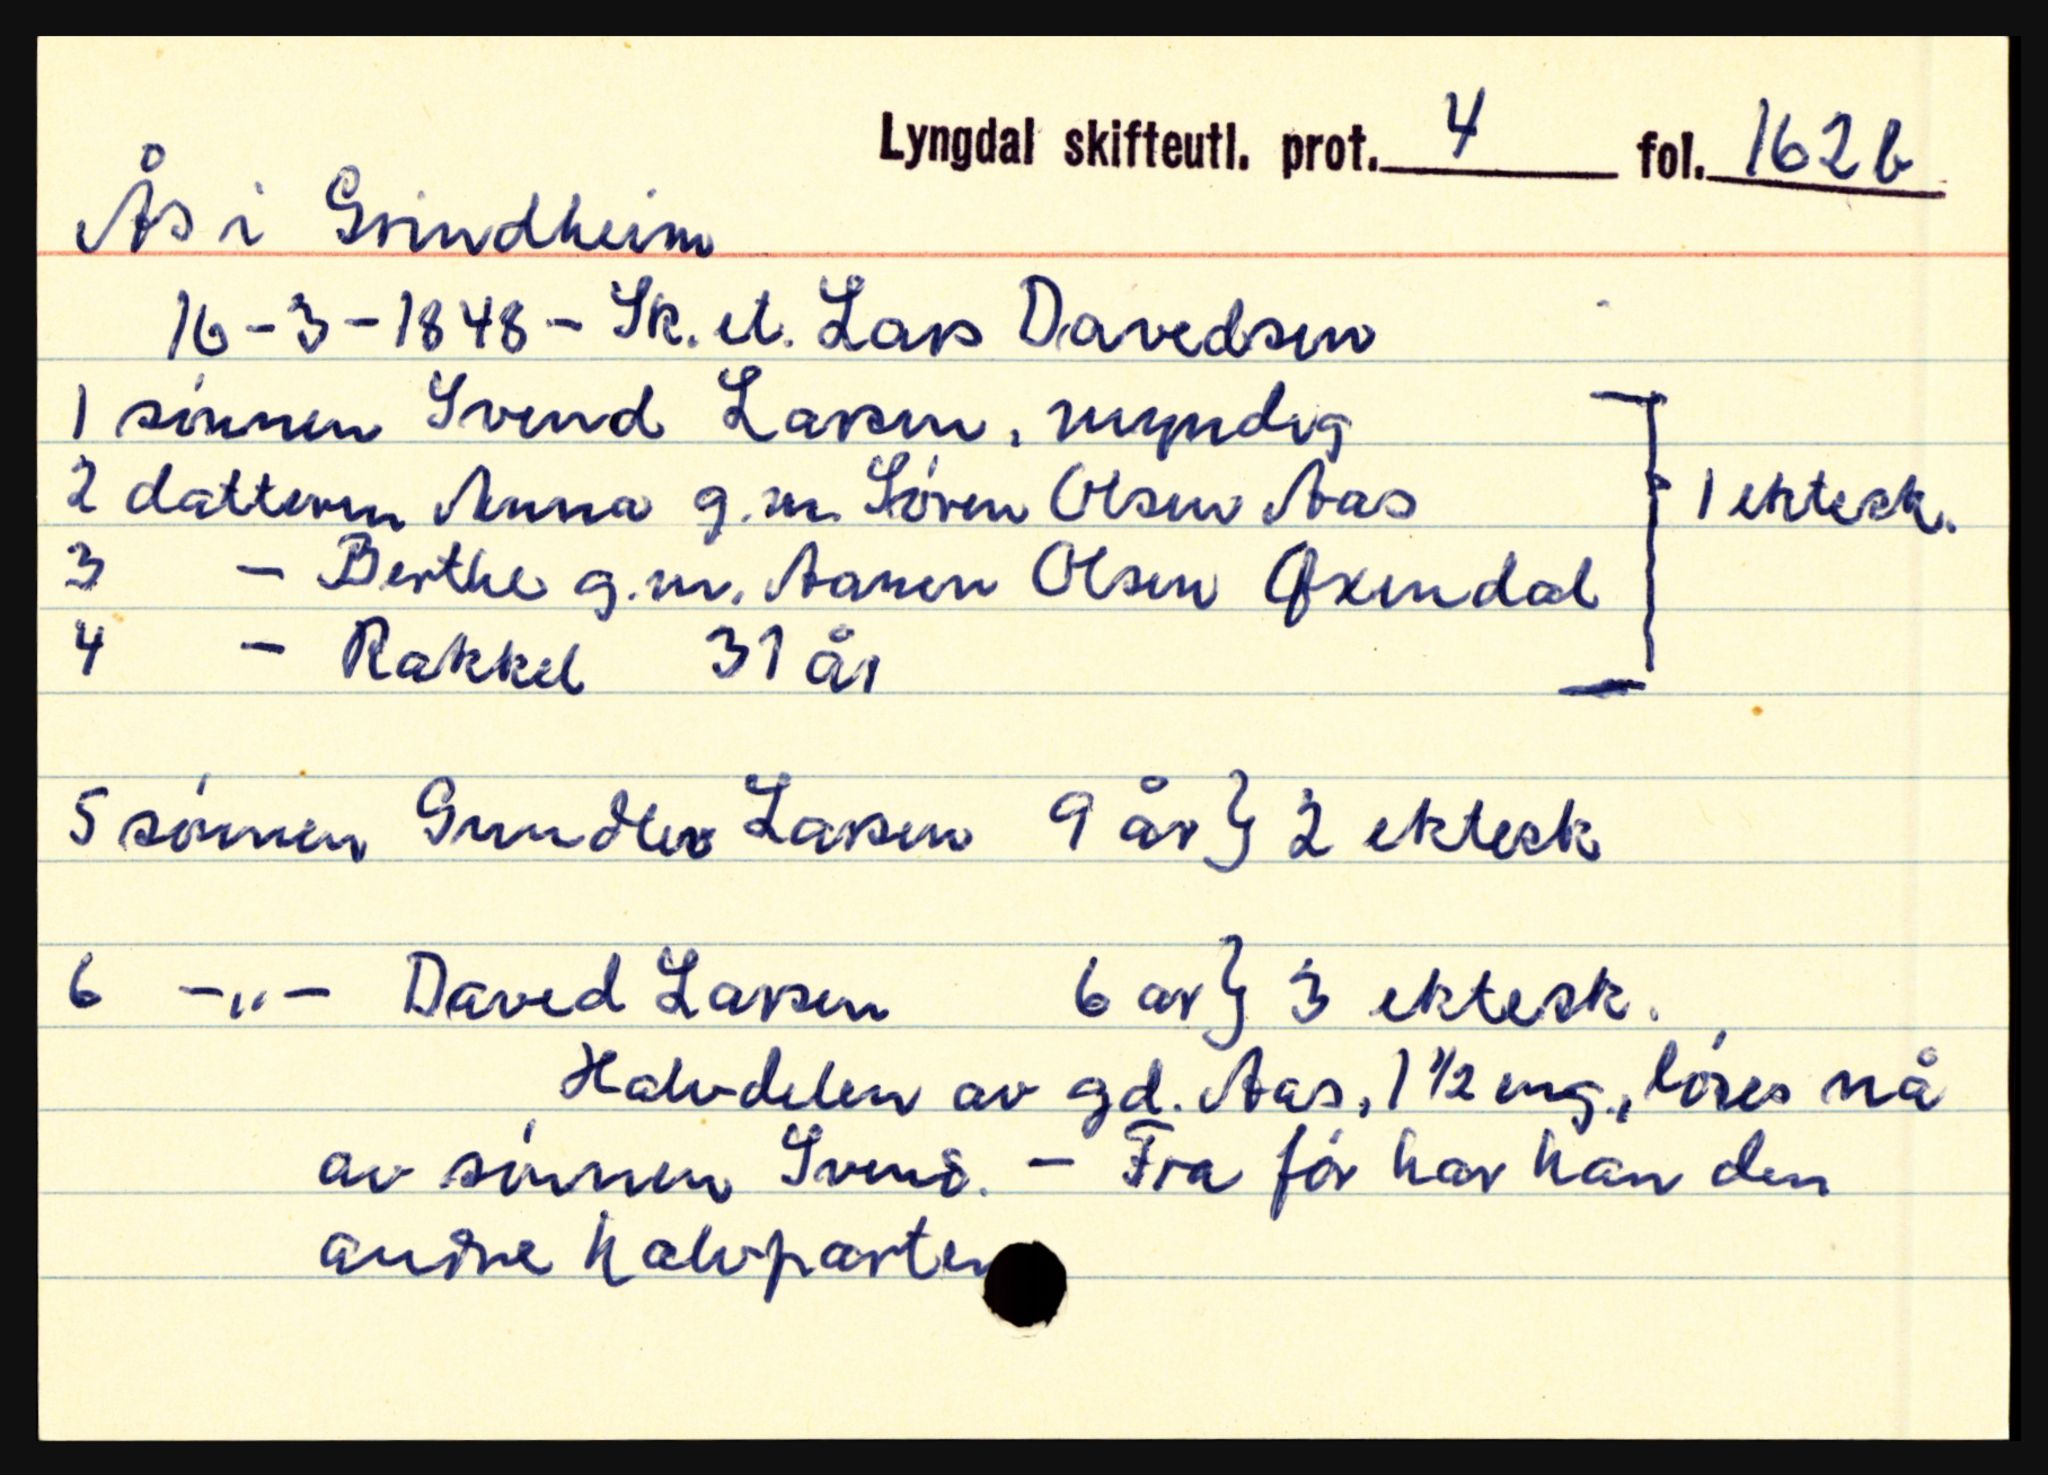 Lyngdal skifteutl. prot. 4 fol. 162b
Ås i Grindheim
16-3-1848 - Sk. et. Lars Davedsen
1 sönnen Svend Larsen, myndig
2 datteren Anna g.m. Sören Olsen Aas
3 - Berthe g.m. Aanen Olsen Øxendal
4 - Rakkel 31 år
1 ektesk.
5 sönnen Gundlev Larsen 9 år} 2 ektesk
6 -"- Daved Larsen 6 år} 3 ektesk.
Halvdelen av gd. Aas, 1 1/2 eng., löses nå
av sönnen Svend. - Fra för har han den
andre halvparten